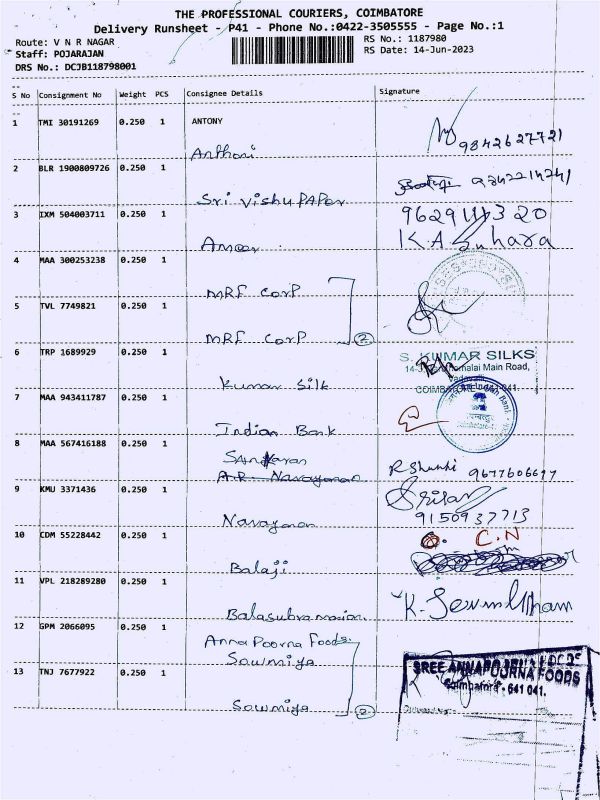 THE PROFESSIONAL COURIERS, COIMBATORE
Delivery Runsheet - P41 - Phone No.:0422-3505555 - Page No.:1
Route: V N R NAGAR
RS No.: 1187980
Staff: POJARAJAN
RS Date: 14-Jun-2023
DRS No.: DCJB118798001
S No Consignment No Weight PCS Consignee Details Signature
1 TMI 30191269 0.250 1 ANTONY
9842627721
Anthoni
2 BLR 1900809726 0.250 1
Sri Vishu PAPer
3 IXM 504003711 0.250 1
K.A Suhara
Ameer
4 MAA 300253238 0.250 1
MRF CorP
5 TVL 7749821 0.250 1
MRF CorP 2
6 TRP 1689929 0.250 1
S. KUMAR SILKS
Main Road,
Kumar Silk
COIMBATORE 641 041.
7 MAA 943411787 0.250 1
Indian Bank
8 MAA 567416188 0.250 1
A.R. Narayanan
9 KMU 3371436 0.250 1
9150937713
Narayanan
10 CDM 55228442 0.250 1
C.N
Balaji
11 VPL 218289280 0.250 1
Balasubramanian
12 GPM 2066095 0.250 1
AnnaPoorna Foods.
Sowmiya
SREE ANNAPOORNA FOODS
Coimbatore - 641 041.
13 TNJ 7677922 0.250 1
Sowmiya 2